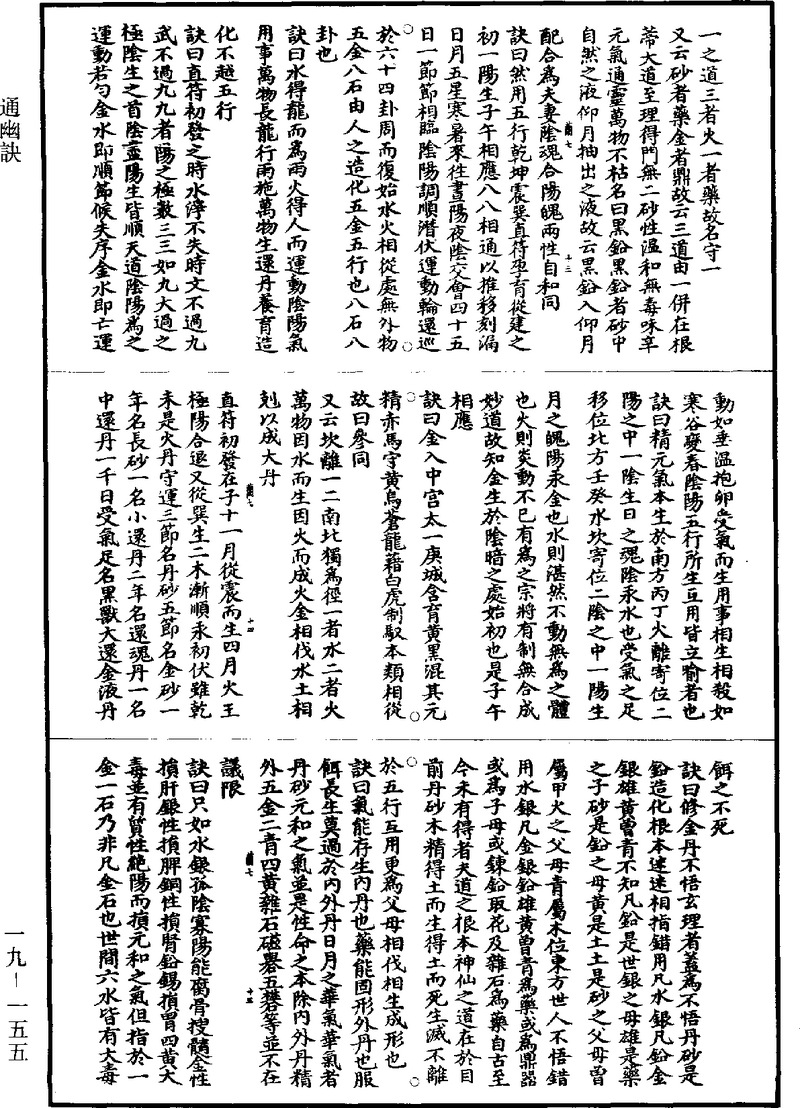 通幽訣
一九－一五五
一之道三者火一者藥故名守一
又云砂者藥金者鼎故云三道由一併在根
蒂大道至理得門無二砂性溫和無毒味辛
元氣通靈萬物不枯名曰黑鉛黑鉛者砂中
自然之液仰月抽出之液故云黑鉛入仰月
配合為夫妻陰魂合陽魄兩性自和同
訣曰然用五行乾坤震巽直符孕育從建之
初一陽生子午相應八八相通以推移刻漏
日月五星寒暑來往晝陽夜陰交會四十五
日一節節相臨陰陽調順潛伏運動輪還巡
於六十四卦周而復始水火相從處無外物
五金八石由人之造化五金五行也八石八
卦也
訣曰水得龍而為雨火得人而運動陰陽氣
用事萬物長龍行雨施萬物生還丹養育造
化不越五行
訣曰直符初發之時水滓不失時文不過九
武不過九九者陽之極數三三如九大過之
極陰生之首陰靈陽生皆順天道陰陽為之
運動若勻金水即順節候失序金水即亡運
動如垂溫抱卵受氣而生用事相生相殺如
寒谷變春陰陽五行所生互用皆立喻者也
訣曰精元氣本生於南方丙丁火離寄位二
陽之中一陰生日之魂陰汞水也受氣之足
移位北方壬癸水坎寄位二陰之中一陽生
月之魄陽汞金也水則湛然不動無為之體
也火則炎動不已有為之宗將有制無合成
妙道故知金生於陰暗之處始初也是子午
相應
訣曰金入中宮太一庚城含育黃黑混其元
精赤馬守黃烏蒼龍藉白虎制馭本類相從
故曰參同
又云坎離一二南北獨為徑一者水二者火
萬物因水而生因火而成火金相伐水土相
剋以成大丹
直符初發在子十一月從震而生四月火王
極陽合退又從巽生二木漸順汞初伏雖乾
未是火丹守運三節名丹砂五節名金砂一
年名長砂一名小還丹二年名還魂丹一名
中還丹一千日受氣足名黑獸大還金液丹
餌之不死
訣曰修金丹不悟玄理者蓋為不悟丹砂是
鉛造化根本迷迷相指錯用凡水銀凡鉛金
銀雄黃曾青不知凡鉛是世銀之母雄是藥
之子砂是鉛之母黃是土土是砂之父母曾
屬甲火之父母青屬木位東方世人不悟錯
用水銀凡金銀鉛雄黃曾青為藥或為鼎器
或為子母或鍊鉛取花及雜石為藥自古至
今未有得者夫道之根本神仙之道在於目
前丹砂木精得土而生得土而死生滅不離
於五行互用更為父母相伐相生成形也
訣曰氣能存生內丹也藥能固形外丹也服
餌長生莫過於內外丹日月之華氣華氣者
丹砂元和之氣並是性命之本除內外丹精
外五金二青四黃雜石磁礜五礬等並不在
議限
訣曰只如水銀孤陰寡陽能腐骨搜髓金性
損肝銀性損脾銅性損腎鉛錫損胃四黃大
毒並有質性絕陽而損元和之氣但指於一
金一石乃非凡金石也世間六水皆有大毒